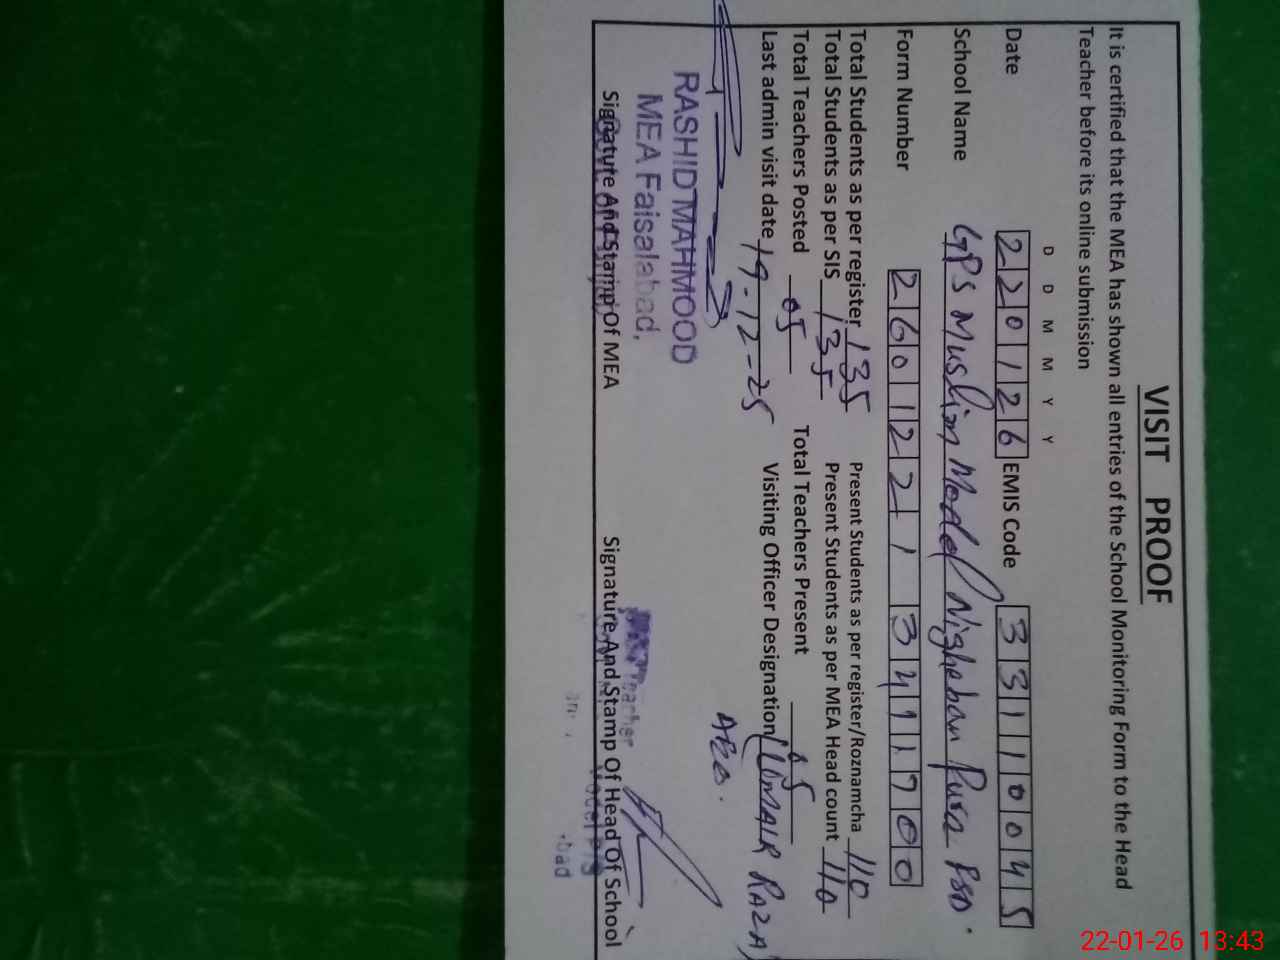 VISIT PROOF
It is certified that the MEA has shown all entries of the School Monitoring Form to the Head
Teacher before its online submission
D D M M Y Y
Date 220126 EMIS Code 33110045
School Name GPS Muslim Model Nigheban Pura FSD.
Form Number 26012213411700
Total Students as per register 135 Present Students as per register/Roznamcha 110
Total Students as per SIS 135 Present Students as per MEA Head count 110
Total Teachers Posted 05 Total Teachers Present 05
Last admin visit date 19-12-25 Visiting Officer Designation (UMAIR RAZA)
AEO.
RASHID MAHMOOD
MEA Faisalabad.
Teacher
Signature And Stamp Of MEA Signature And Stamp Of Head Of School
22-01-26 13:43